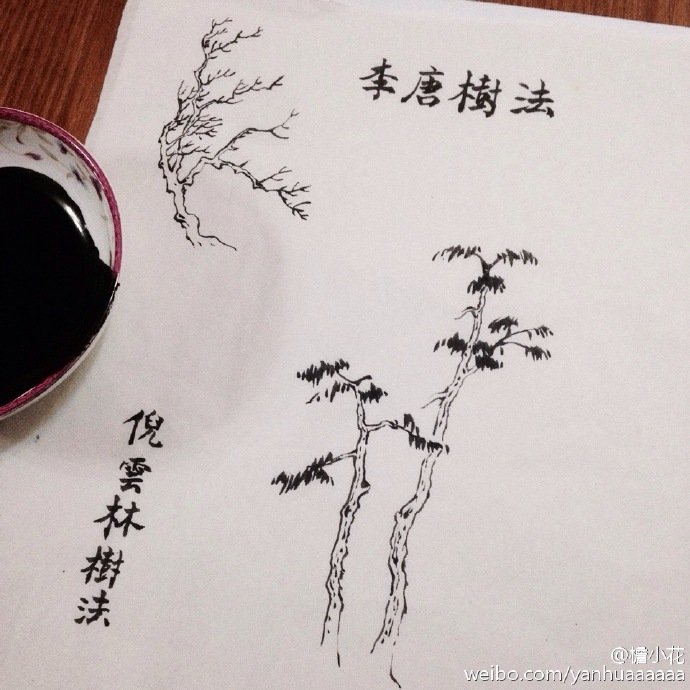 李唐樹法
倪雲林樹法
@檐小花
weibo.com/yanhuaaaaaa